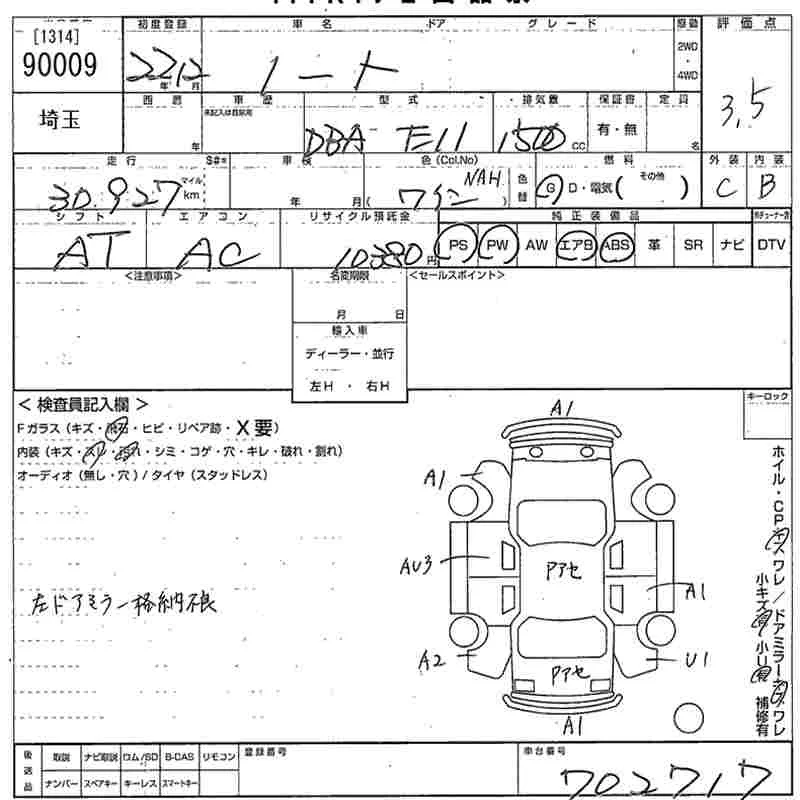 [1314]
90009
初度登録
22年12月
車名 ドア グレード
ノート
駆動
2WD
・
4WD
評価点
3.5
埼玉
西暦
年
車歴
未記入は自家用
型式
DBA E11
排気量
1500cc
保証書
有・無
定員
名
走行
30.927
マイル
km
S#*
車検
年 月
色(Col.No)
(ワイン NAH)
色替
燃料
G D・電気( その他 )
外装
C
内装
B
シフト
AT
エアコン
AC
リサイクル預託金
10380円
純正装備品
PS PW AW エアB ABS 革 SR ナビ DTV
<注意事項>
名変期限
月 日
<セールスポイント>
輸入車
ディーラー・並行
左H ・ 右H
< 検査員記入欄 >
Fガラス(キズ・飛石・ヒビ・リペア跡・X要)
内装(キズ・スレ・汚れ・シミ・コゲ・穴・キレ・破れ・割れ)
オーディオ(無し・穴)/タイヤ(スタッドレス)
左ドアミラー格納不良
キーロック
A1
A1
AU3
Pアセ
A1
A2
Pアセ
U1
A1
ホイル・CPキズワレ/ドアミラーキズワレ
小キズ有 小U有 補修有
後送品
取説 ナビ取説 ロム/SD B-CAS リモコン
ナンバー スペアキー キーレス スマートキー
登録番号
車台番号
702717